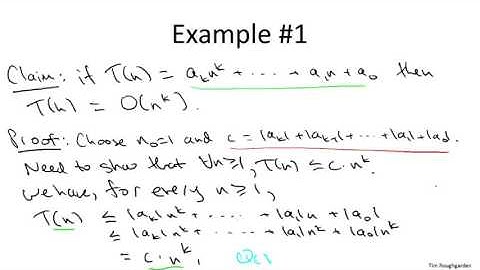 Example #1
Claim: if T(n) = aₖnᵏ + ... + a₁n + a₀ then
T(n) = O(nᵏ).
Proof: Choose n₀=1 and c = |aₖ| + |aₖ₋₁| + ... + |a₁| + |a₀|.
Need to show that ∀n≥1, T(n) ≤ c·nᵏ.
we have, for every n≥1,
T(n) ≤ |aₖ|nᵏ + ... + |a₁|n + |a₀|
≤ |aₖ|nᵏ + ... + |a₁|nᵏ + |a₀|nᵏ
= c·nᵏ.
Tim Roughgarden